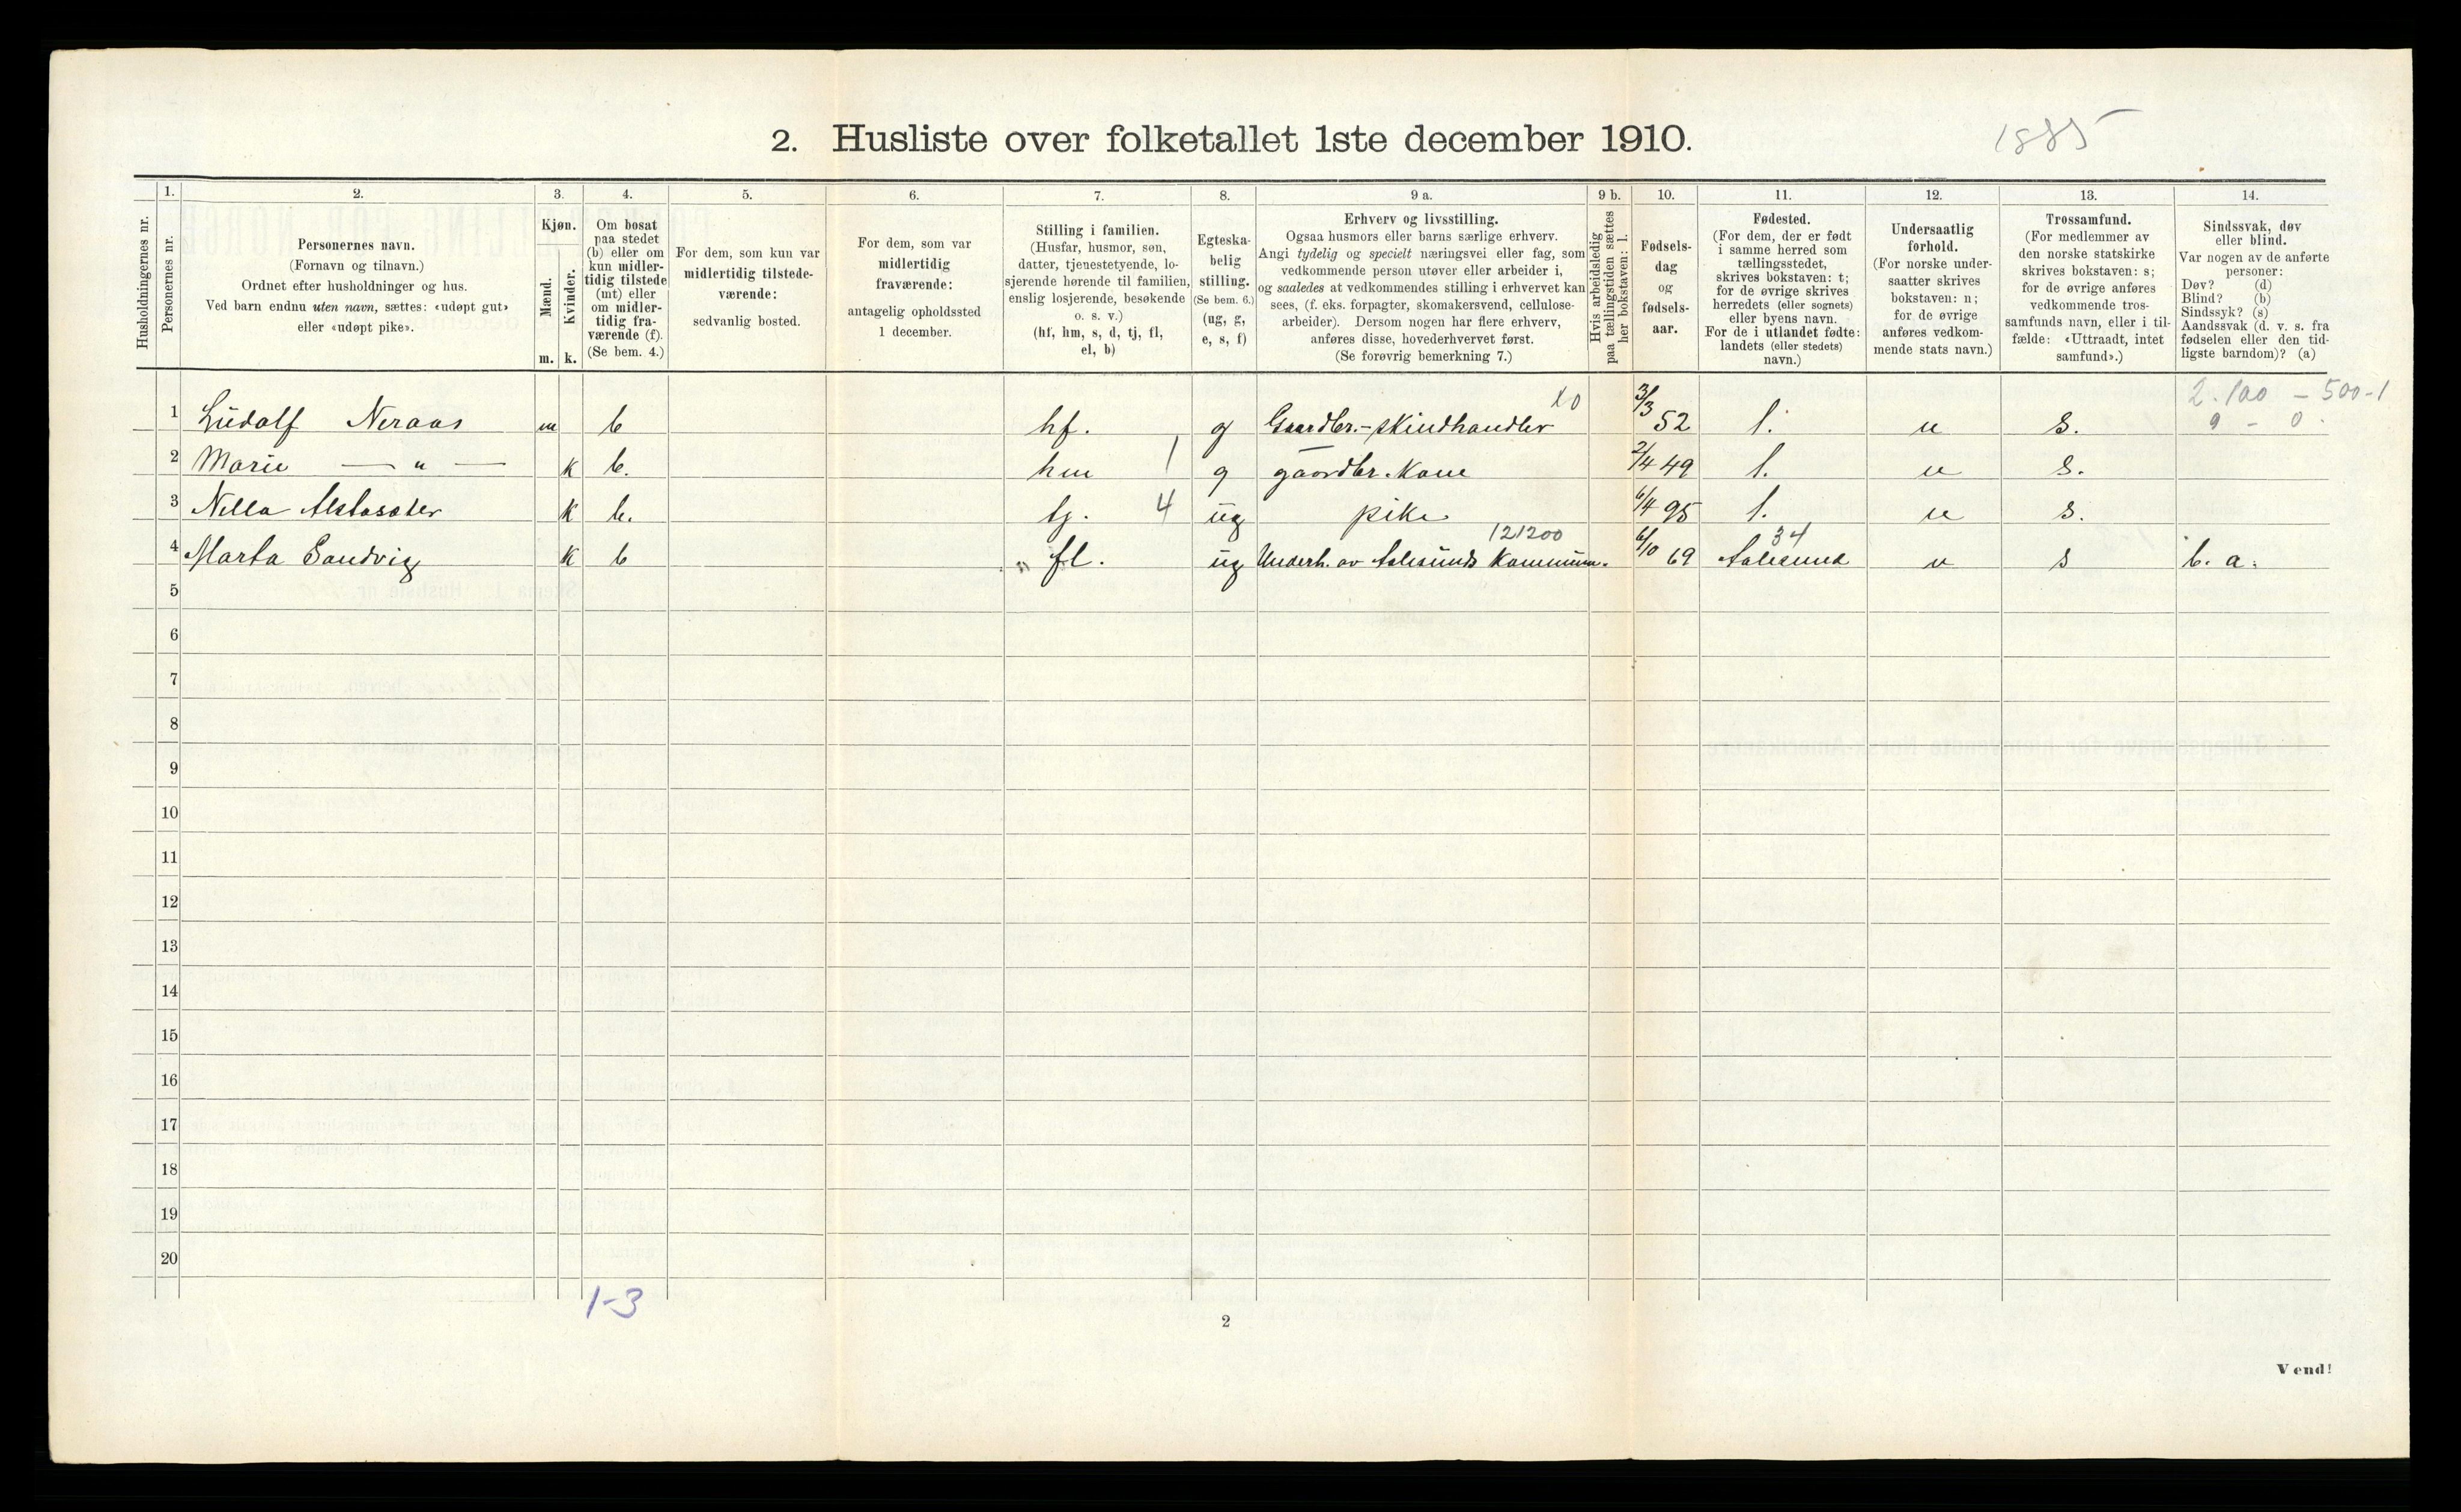 2. Husliste over folketallet 1ste december 1910.
1885
Husholdningernes nr.
1.
Personernes nr.
2.
Personernes navn.
(Fornavn og tilnavn.)
Ordnet efter husholdninger og hus.
Ved barn endnu uten navn, sættes: «udøpt gut»
eller «udøpt pike».
3.
Kjøn.
Mænd.
Kvinder.
m. k.
4.
Om bosat
paa stedet
(b) eller om
kun midler-
tidig tilstede
(mt) eller
om midler-
tidig fra-
værende (f).
(Se bem. 4.)
5.
For dem, som kun var
midlertidig tilstede-
værende:
sedvanlig bosted.
6.
For dem, som var
midlertidig
fraværende:
antagelig opholdssted
1 december.
7.
Stilling i familien.
(Husfar, husmor, søn,
datter, tjenestetyende, lo-
sjerende hørende til familien,
enslig losjerende, besøkende
o. s. v.)
(hf, hm, s, d, tj, fl,
el, b)
8.
Egteska-
belig
stilling.
(Se bem. 6.)
(ug, g,
e, s, f)
9 a.
Erhverv og livsstilling.
Ogsaa husmors eller barns særlige erhverv.
Angi tydelig og specielt næringsvei eller fag, som
vedkommende person utøver eller arbeider i,
og saaledes at vedkommendes stilling i erhvervet kan
sees, (f. eks. forpagter, skomakersvend, cellulose-
arbeider). Dersom nogen har flere erhverv,
anføres disse, hovederhvervet først.
(Se forøvrig bemerkning 7.)
9 b.
Hvis arbeidsledig
paa tællingstiden sættes
her bokstaven: l.
10.
Fødsels-
dag
og
fødsels-
aar.
11.
Fødested.
(For dem, der er født
i samme herred som
tællingsstedet,
skrives bokstaven: t;
for de øvrige skrives
herredets (eller sognets)
eller byens navn.
For de i utlandet fødte:
landets (eller stedets)
navn.)
12.
Undersaatlig
forhold.
(For norske under-
saatter skrives
bokstaven: n;
for de øvrige
anføres vedkom-
mende stats navn.)
13.
Trossamfund.
(For medlemmer av
den norske statskirke
skrives bokstaven: s;
for de øvrige anføres
vedkommende tros-
samfunds navn, eller i til-
fælde: «Uttraadt, intet
samfund».)
14.
Sindssvak, døv
eller blind.
Var nogen av de anførte
personer:
Døv? (d)
Blind? (b)
Sindssyk? (s)
Aandssvak (d. v. s. fra
fødselen eller den tid-
ligste barndom)? (a)
2.100 - 500-1
9 - 0
1 Ludolf Neraas m b hf. g Gaardbr.-skindhandler 3/3 52 t. n s.
2 Marie — " — k b. hm 1 g gaardbr. kone 2/4 49 t. n s.
3 Nella k b. tj. 4 ug pike 6/4 95 t. n s.
121200 34
4 Marta Sandvig k b fl. ug Underh. av Aalesunds kommun. 6/10 69 Aalesund n s b. a.
5
6
7
8
9
10
11
12
13
14
15
16
17
18
19
20
1-3
2
Vend!